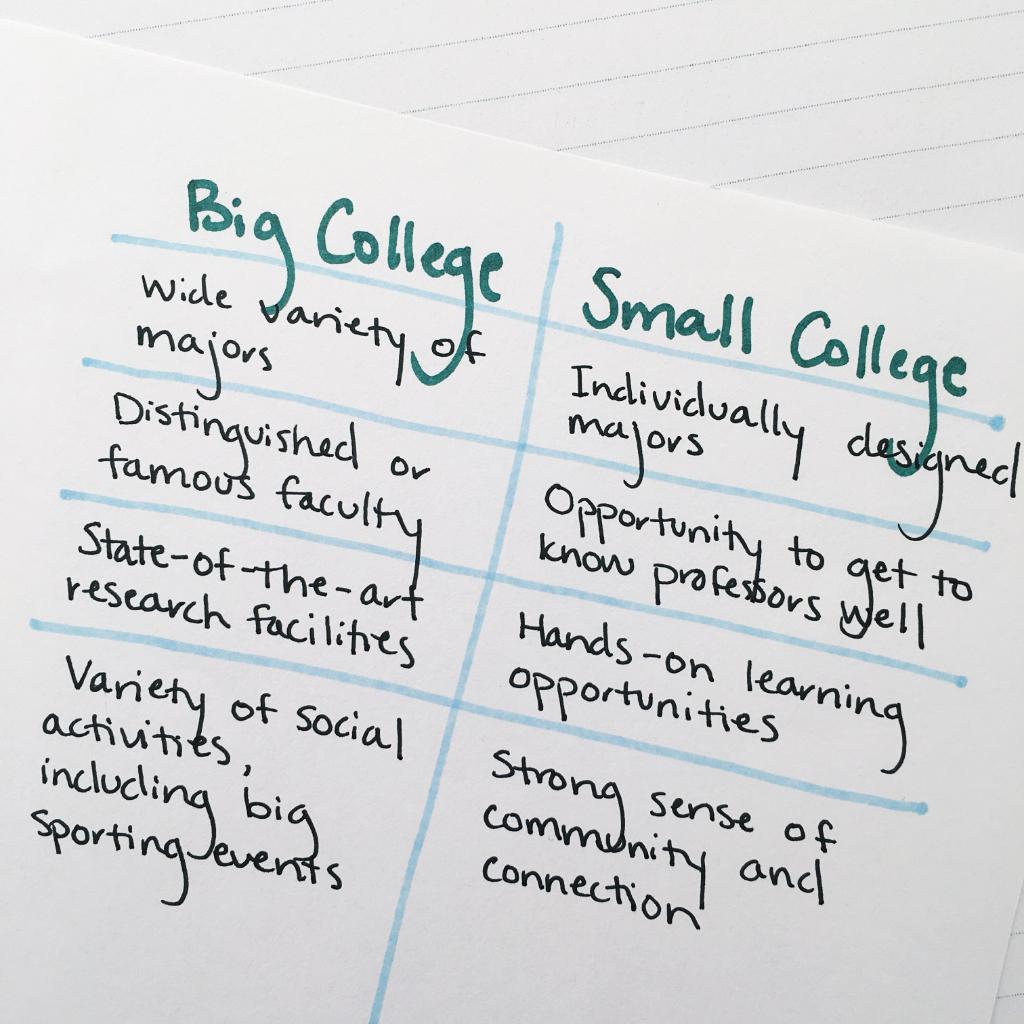 Big College
Wide variety of
majors
Distinguished or
famous faculty
State-of-the-art
research facilities
Variety of social
activities,
including big
sporting events
Small College
Individually designed
majors
Opportunity to get to
know professors well
Hands-on learning
opportunities
Strong sense of
community and
connection